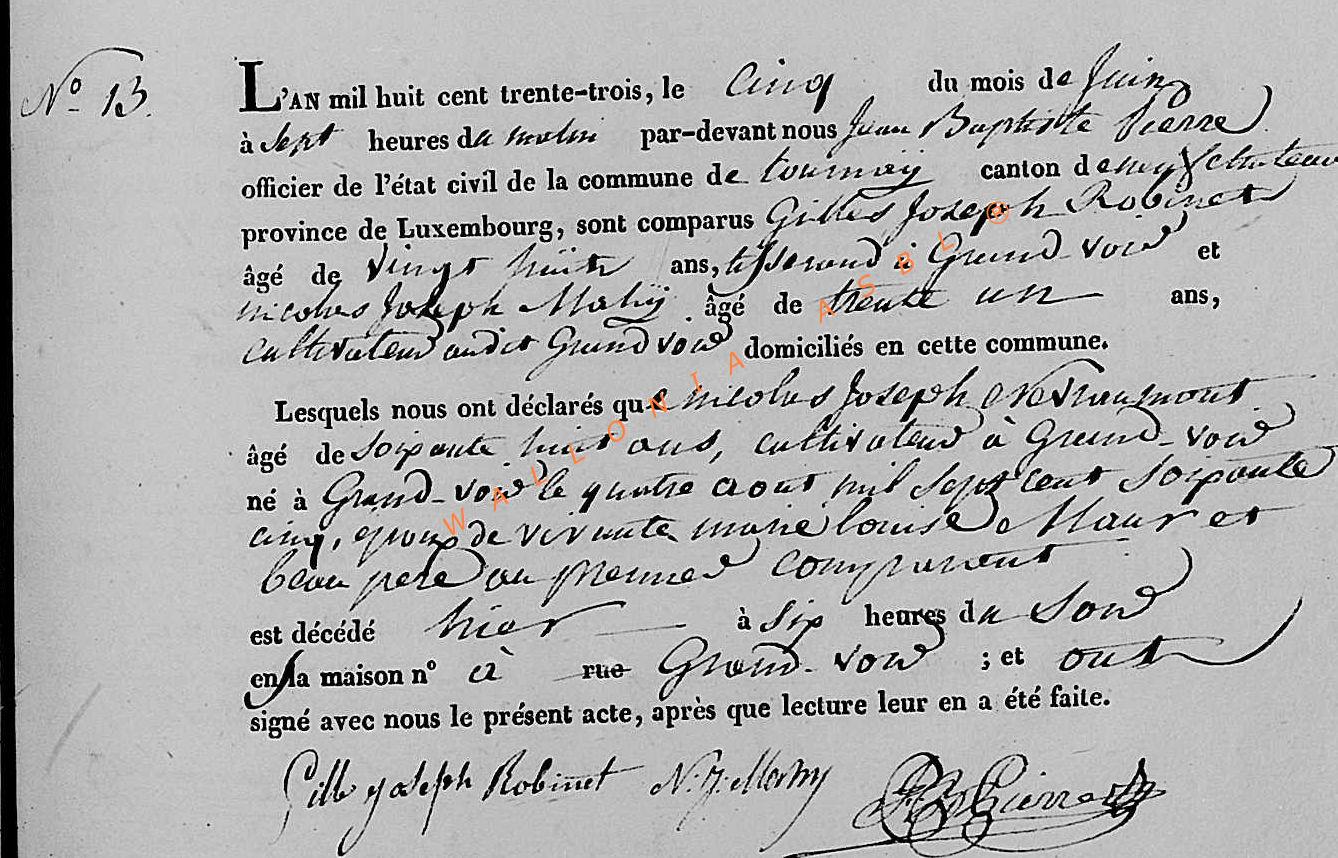 N° 13.
L'AN mil huit cent trente-trois, le cinq du mois de juin
à sept heures du matin par-devant nous Jean Baptiste Pierre
officier de l'état civil de la commune de tournay canton de neufchateau
province de Luxembourg, sont comparus Gilles Joseph Robinet
âgé de vingt huit ans, tisserand à Grand-voir et
nicolas Joseph Mahy âgé de trente un ans,
cultivateur audit Grandvoir domiciliés en cette commune.
Lesquels nous ont déclarés que nicolas Joseph
âgé de soixante huit ans, cultivateur à Grand-voir
né à Grand-voir le quatre aout mil sept cent soixante
cinq, epoux de vivante marie louise et
beau pere au premier comparant
est décédé hier à six heures du soir
en sa maison n° à rue Grand-voir ; et ont
signé avec nous le présent acte, après que lecture leur en a été faite.
Gille joseph Robinet N. J. Mahy JB Pierre
WALLONIA ASBL ©